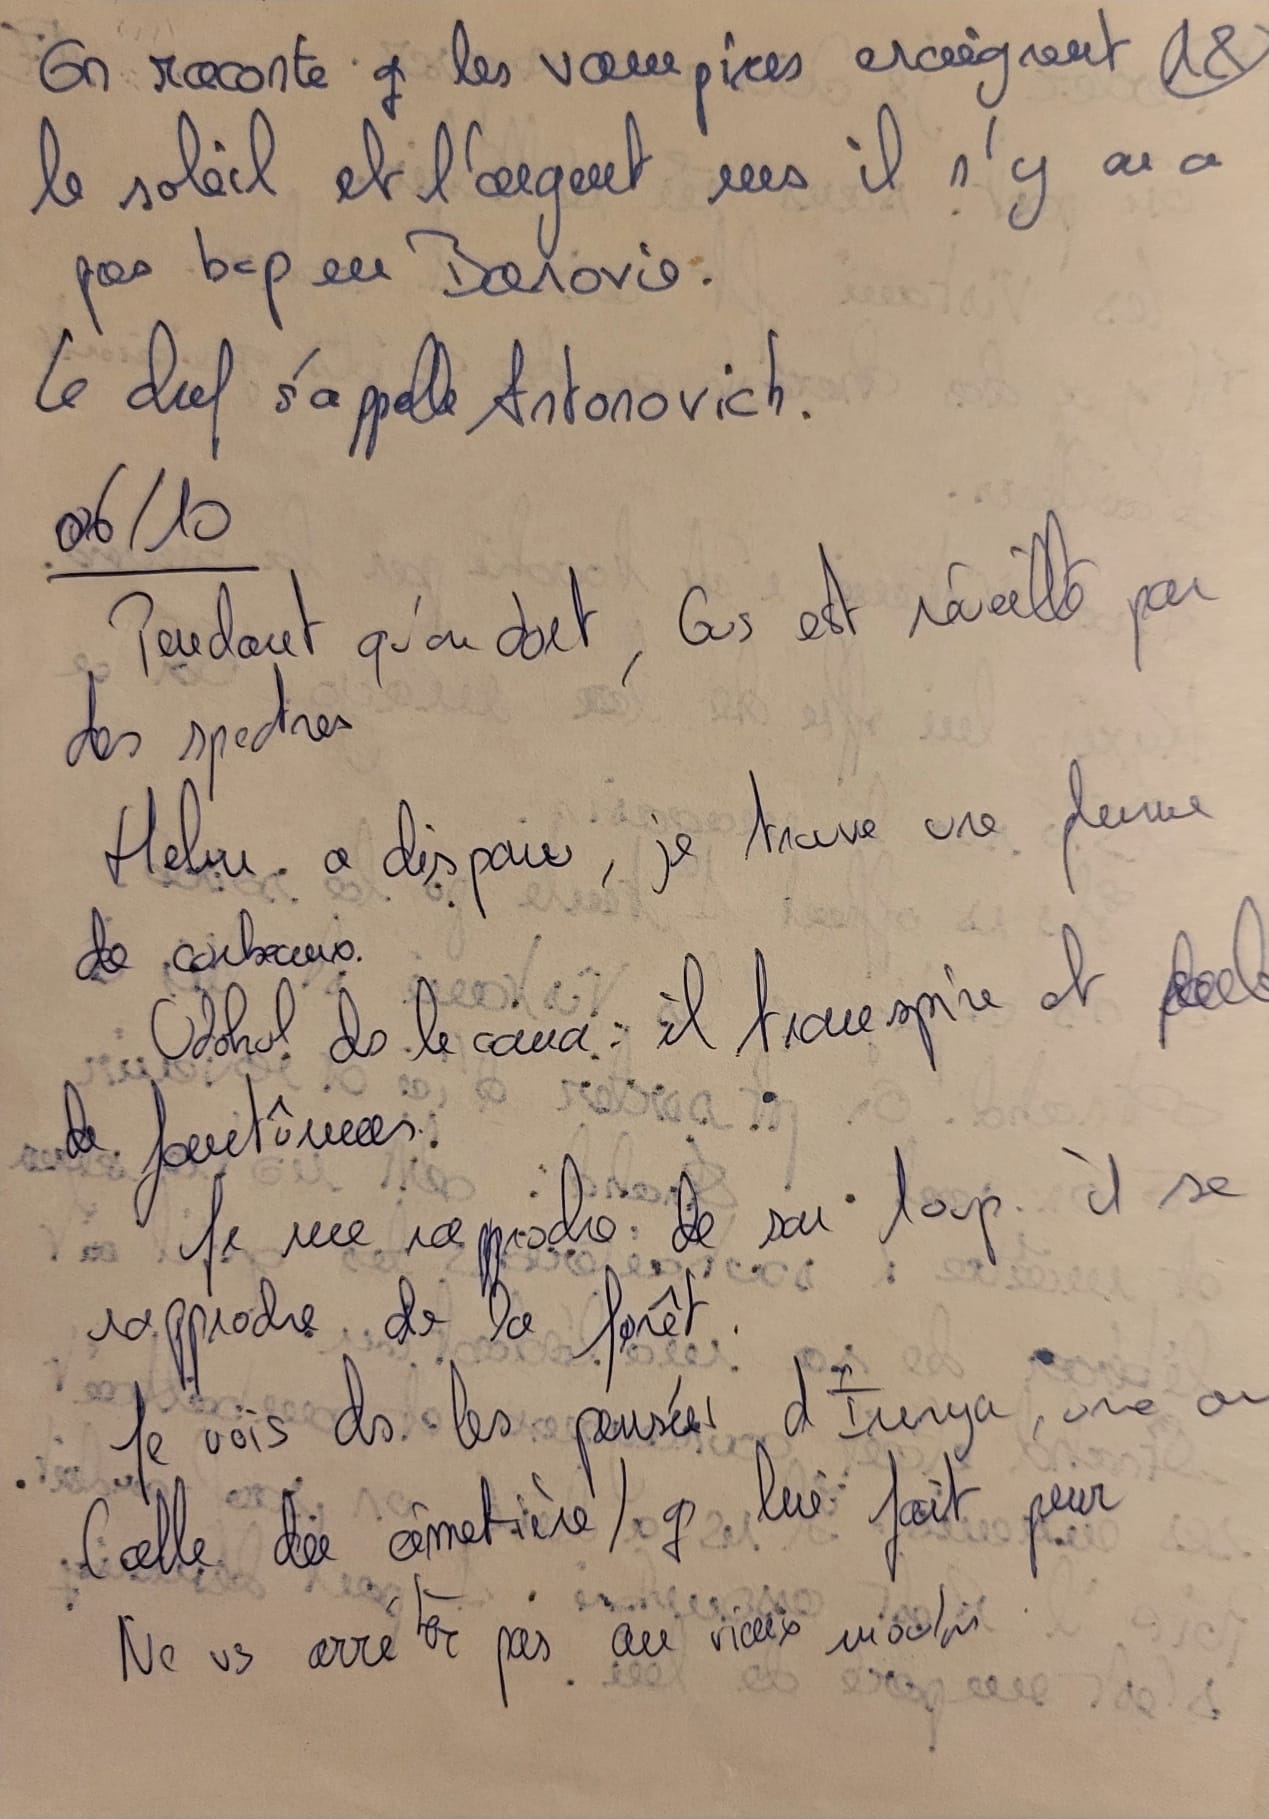 On raconte q les vampires craignent 18
le soleil et l'argent ms il n'y en a
pas bcp en Barovie.
Le chef s'appelle Antonovich.
06/10
Pendant qu'on dort, Gus est réveillé par
des spectres
Helm a disparu, je trouve une plume
de corbeau.
ds le coma : il transpire et parle
de fantômes.
Je me rapproche de son loup. il se
rapproche de la forêt.
Je vois ds les pensées d'Irenya, une
(celle du cimetière) q lui fait peur
Ne vs arrêtez pas au vieux moulin